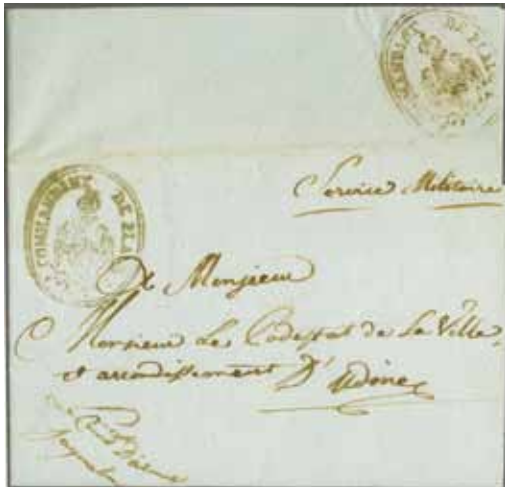 COMMANDANT DE PLA
Service Militaire
COMMANDANT DE PLA
A Monsieur
Monsieur Le Podestat de la Ville
et arrondissement D'Udine